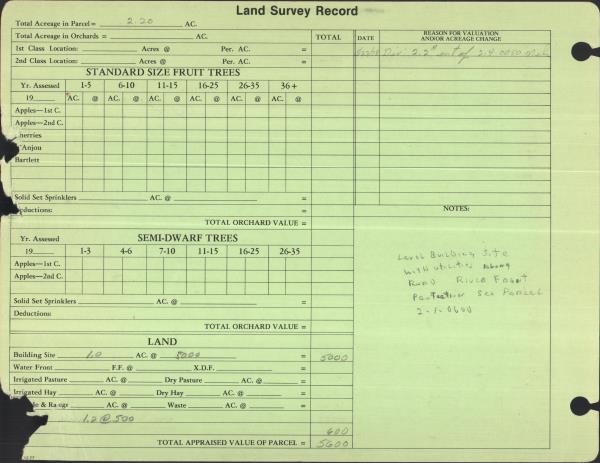 Land Survey Record
Total Acreage in Parcel = 2.20 AC.
Total Acreage in Orchards = AC. TOTAL DATE REASON FOR VALUATION AND/OR ACREAGE CHANGE
1st Class Location: Acres @ Per. AC. = Div 2.2 out of
2nd Class Location: Acres @ Per. AC. =
STANDARD SIZE FRUIT TREES
Yr. Assessed 1-5 6-10 11-15 16-25 26-35 36+
19 AC. @ AC. @ AC. @ AC. @ AC. @ AC. @
Apples—1st C.
Apples—2nd C.
herries
Anjou
Bartlett
Solid Set Sprinklers AC. @ =
eductions: = NOTES:
TOTAL ORCHARD VALUE =
Yr. Assessed SEMI-DWARF TREES
19 1-3 4-6 7-10 11-15 16-25 26-35
Apples—1st C.
Apples—2nd C.
Level Building Site
with utilities Along
Road River Front
See Parcel
2-1-0600
Solid Set Sprinklers AC. @ =
Deductions: =
TOTAL ORCHARD VALUE =
LAND
Building Site 1.0 AC. @ 5000 = 5000
Water Front F.F. @ X.D.F. =
Irrigated Pasture AC. @ Dry Pasture AC. @ =
Irrigated Hay AC. @ Dry Hay AC. @ =
le & Range AC. @ Waste AC. @ =
1.2 @ 500
600
TOTAL APPRAISED VALUE OF PARCEL = 5600